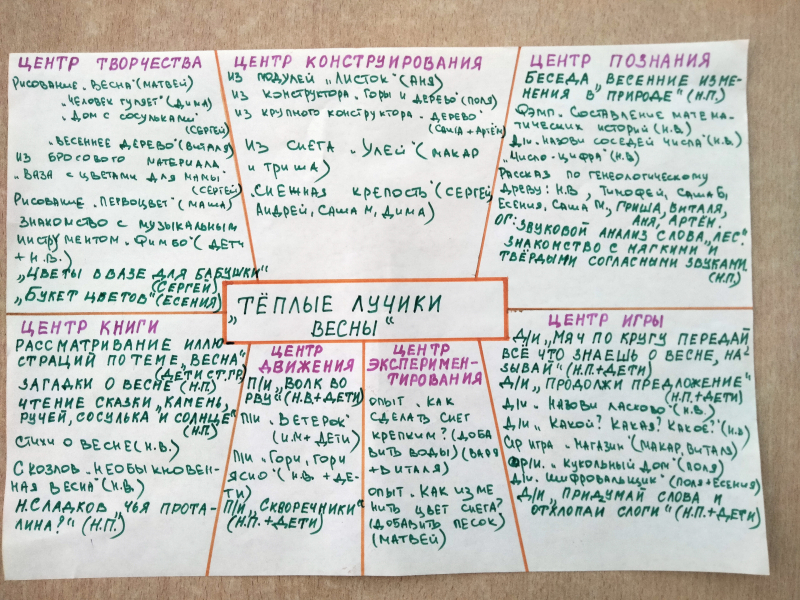 ЦЕНТР ТВОРЧЕСТВА
Рисование „Весна“ (Матвей)
„Человек гуляет“ (Дима)
„Дом с сосульками“
(Сергей)
„Весеннее дерево“ (Виталя)
Из бросового материала
„Ваза с цветами для мамы“
(Сергей)
Рисование „Первоцвет“ (Маша)
Знакомство с музыкальным
инструментом „Фимбо“ (дети
+ Н.В.)
„Цветы в вазе для бабушки“
(Сергей)
„Букет цветов“ (Есения)
ЦЕНТР КОНСТРУИРОВАНИЯ
Из модулей „Листок“ (Аня)
Из конструктора „Горы и дерево“ (Поля)
Из крупного конструктора „Дерево“
(Саша + Артём)
Из снега „Улей“ (Макар
и Гриша)
„Снежная крепость“ (Сергей
Андрей, Саша М, Дима)
ЦЕНТР ПОЗНАНИЯ
Беседа „Весенние изме-
нения в природе“ (Н.П.)
ФЭМП. Составление матема-
тических историй (Н.В.)
Д/и „Назови соседей числа“ (Н.В.)
„Число-цифра“ (Н.В)
Рассказ по генеологическому
древу: Н.В, Тимофей, Саша Б,
Есения, Саша М, Гриша, Виталя,
Аня, Артём.
ОГ: Звуковой анализ слова „Лес“.
Знакомство с мягкими и
твёрдыми согласными звуками.
(Н.П)
„ТЁПЛЫЕ ЛУЧИКИ
ВЕСНЫ“
ЦЕНТР КНИГИ
Рассматривание иллю-
страций по теме „Весна“
(дети ст.гр)
Загадки о весне (Н.П)
Чтение сказки „Камень,
ручей, сосулька и солнце“
(Н.П)
Стихи о весне (Н.В.)
С Козлов „Необыкновен-
ная весна“ (Н.В.)
Н. Сладков „Чья прота-
лина?“ (Н.П.)
ЦЕНТР
ДВИЖЕНИЯ
П/и „Волк во
рву“ (Н.В + дети)
П/и „Ветерок“
(И.М + дети)
П/и „Гори, гори
ясно“ (Н.В. + де-
ти)
П/и „Скворечники“
(Н.П. + дети)
ЦЕНТР
ЭКСПЕРИМЕН-
ТИРОВАНИЯ
Опыт „Как
сделать снег
крепким? (доба
вить воды) (Варя
+ Виталя)
Опыт „Как изме
нить цвет снега?
(добавить песок)
(Матвей)
ЦЕНТР ИГРЫ
Д/и „Мяч по кругу передай
всё что знаешь о весне, на-
зывай“ (Н.П. + дети)
Д/и „Продолжи предложение“
(Н.П. + дети)
Д/и „Назови ласково“ (Н.В.)
Д/и „Какой? Какая? Какое?“ (Н.В)
С/р игра „Магазин“ (Макар, Виталя)
„Кукольный дом“ (Поля)
Д/и „Шифровальщик“ (Поля + Есения)
Д/и „Придумай слова и
отхлопай слоги“ (Н.П. + дети)